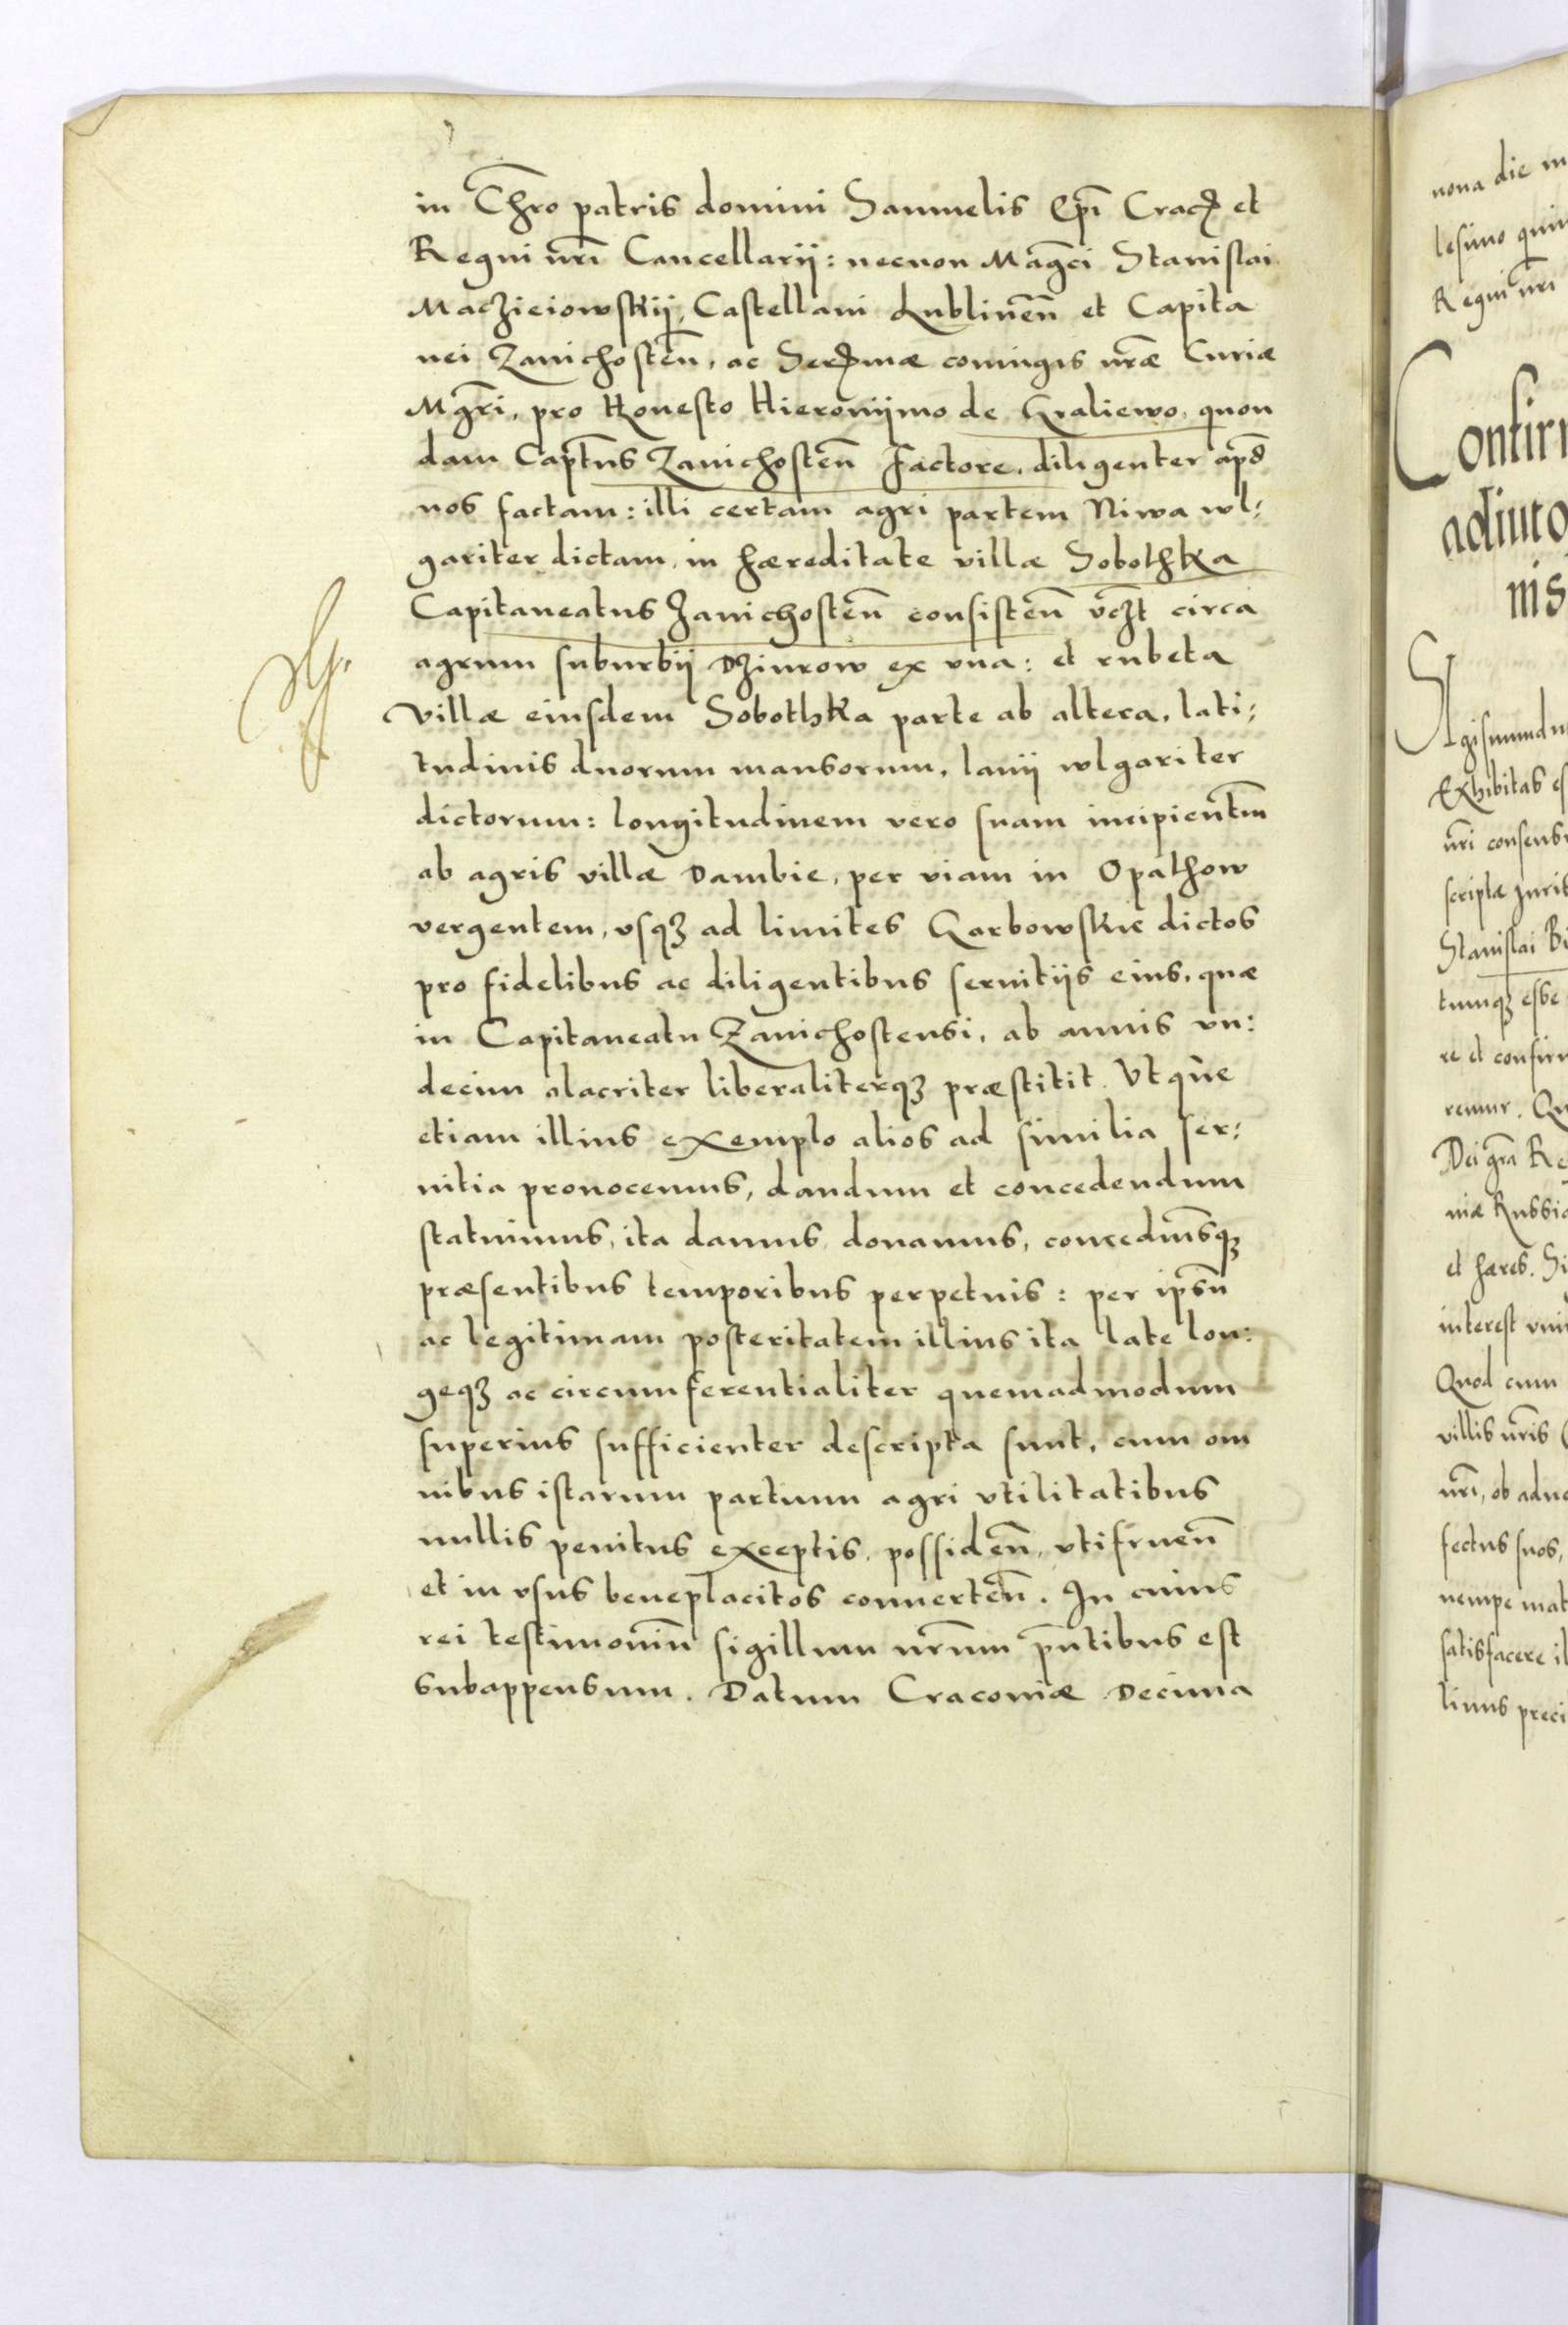 in Chr̃o patris domini Samuelis Ep̃i Crac̃ et
Regni nr̃i Cancellarij: necnon Mag̃ci Stanislai
Maczieiowskij, Castellani Lublineñ et Capita
nei Zanichosteñ, ac Ser̃mæ coniugis nr̃æ Curiæ
Mgr̃i, pro Honesto Hieronijmo de Graliewo, quon
dam Captñs Zanichosteñ Factore, diligenter apd̃
nos factam: illi certam agri partem Niwa wl:
gariter dictam, in hæreditate villæ Sobothka
Capitaneatus Zanichosteñ consisteñ vcz̃t circa
agrum suburbij Dziurow ex vna: et rubeta
villæ eiusdem Sobothka parte ab altera, lati:
tudinis duorum mansorum, lanij wlgariter
dictorum: longitudinem vero suam incipient̃m
ab agris villæ Dambie, per viam in Opathow
vergentem, vsqꝫ ad limites Garbowskie dictos
pro fidelibus ac diligentibus seruitijs eius, quæ
in Capitaneatu Zanichostensi, ab annis vn:
decim alacriter liberaliterqꝫ præstitit. Vt què
etiam illius exemplo alios ad similia ser:
uitia prouocemus, dandum et concedendum
statuimus, ita damus donamus, concedim̃sqꝫ
præsentibus temporibus perpetuis: per ips̃n
ac legitimam posteritatem illius ita late lon:
geqꝫ ac circumferentialiter quemadmodum
superius sufficienter descripta sunt, cum om
nibus istarum partium agri vtilitatibus
nullis penitus exceptis, possideñ, vtifrueñ
et in vsus beneplacitos conuerteñ. In cuius
rei testimoniũ sigillum nr̃um p̃ntibus est
subappensum. Datum Cracouiæ Decima
nona die
lesimo
Regni nr̃i
adiuto
nis
Exhibitas
nr̃i
Stanislai
tumqꝫ esse
re et
Dei gr̃a
et hæres.
interest
Quod cum
villis nr̃is
nr̃i, ob
fectus suos,
nempe
satisfacere